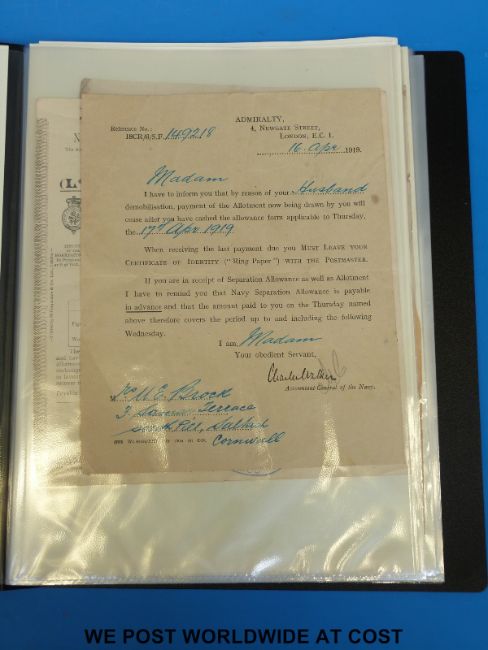 ADMIRALTY,
4, NEWGATE STREET,
LONDON, E.C. 1.
Reference No.:
149218
16 Apr 1919.
Madam
I have to inform you that by reason of your Husband
demobilisation, payment of the Allotment now being drawn by you will
cease after you have cashed the allowance form applicable to Thursday,
the 17th Apr 1919
When receiving the last payment due you MUST LEAVE YOUR
CERTIFICATE OF IDENTITY ("Ring Paper") WITH THE POSTMASTER.
If you are in receipt of Separation Allowance as well as Allotment
I have to remind you that Navy Separation Allowance is payable
in advance and that the amount paid to you on the Thursday named
above therefore covers the period up to and including the following
Wednesday.
I am, Madam
Your obedient Servant,
Accountant General of the Navy.
M Brock
3, Terrace
Cornwall
WE POST WORLDWIDE AT COST